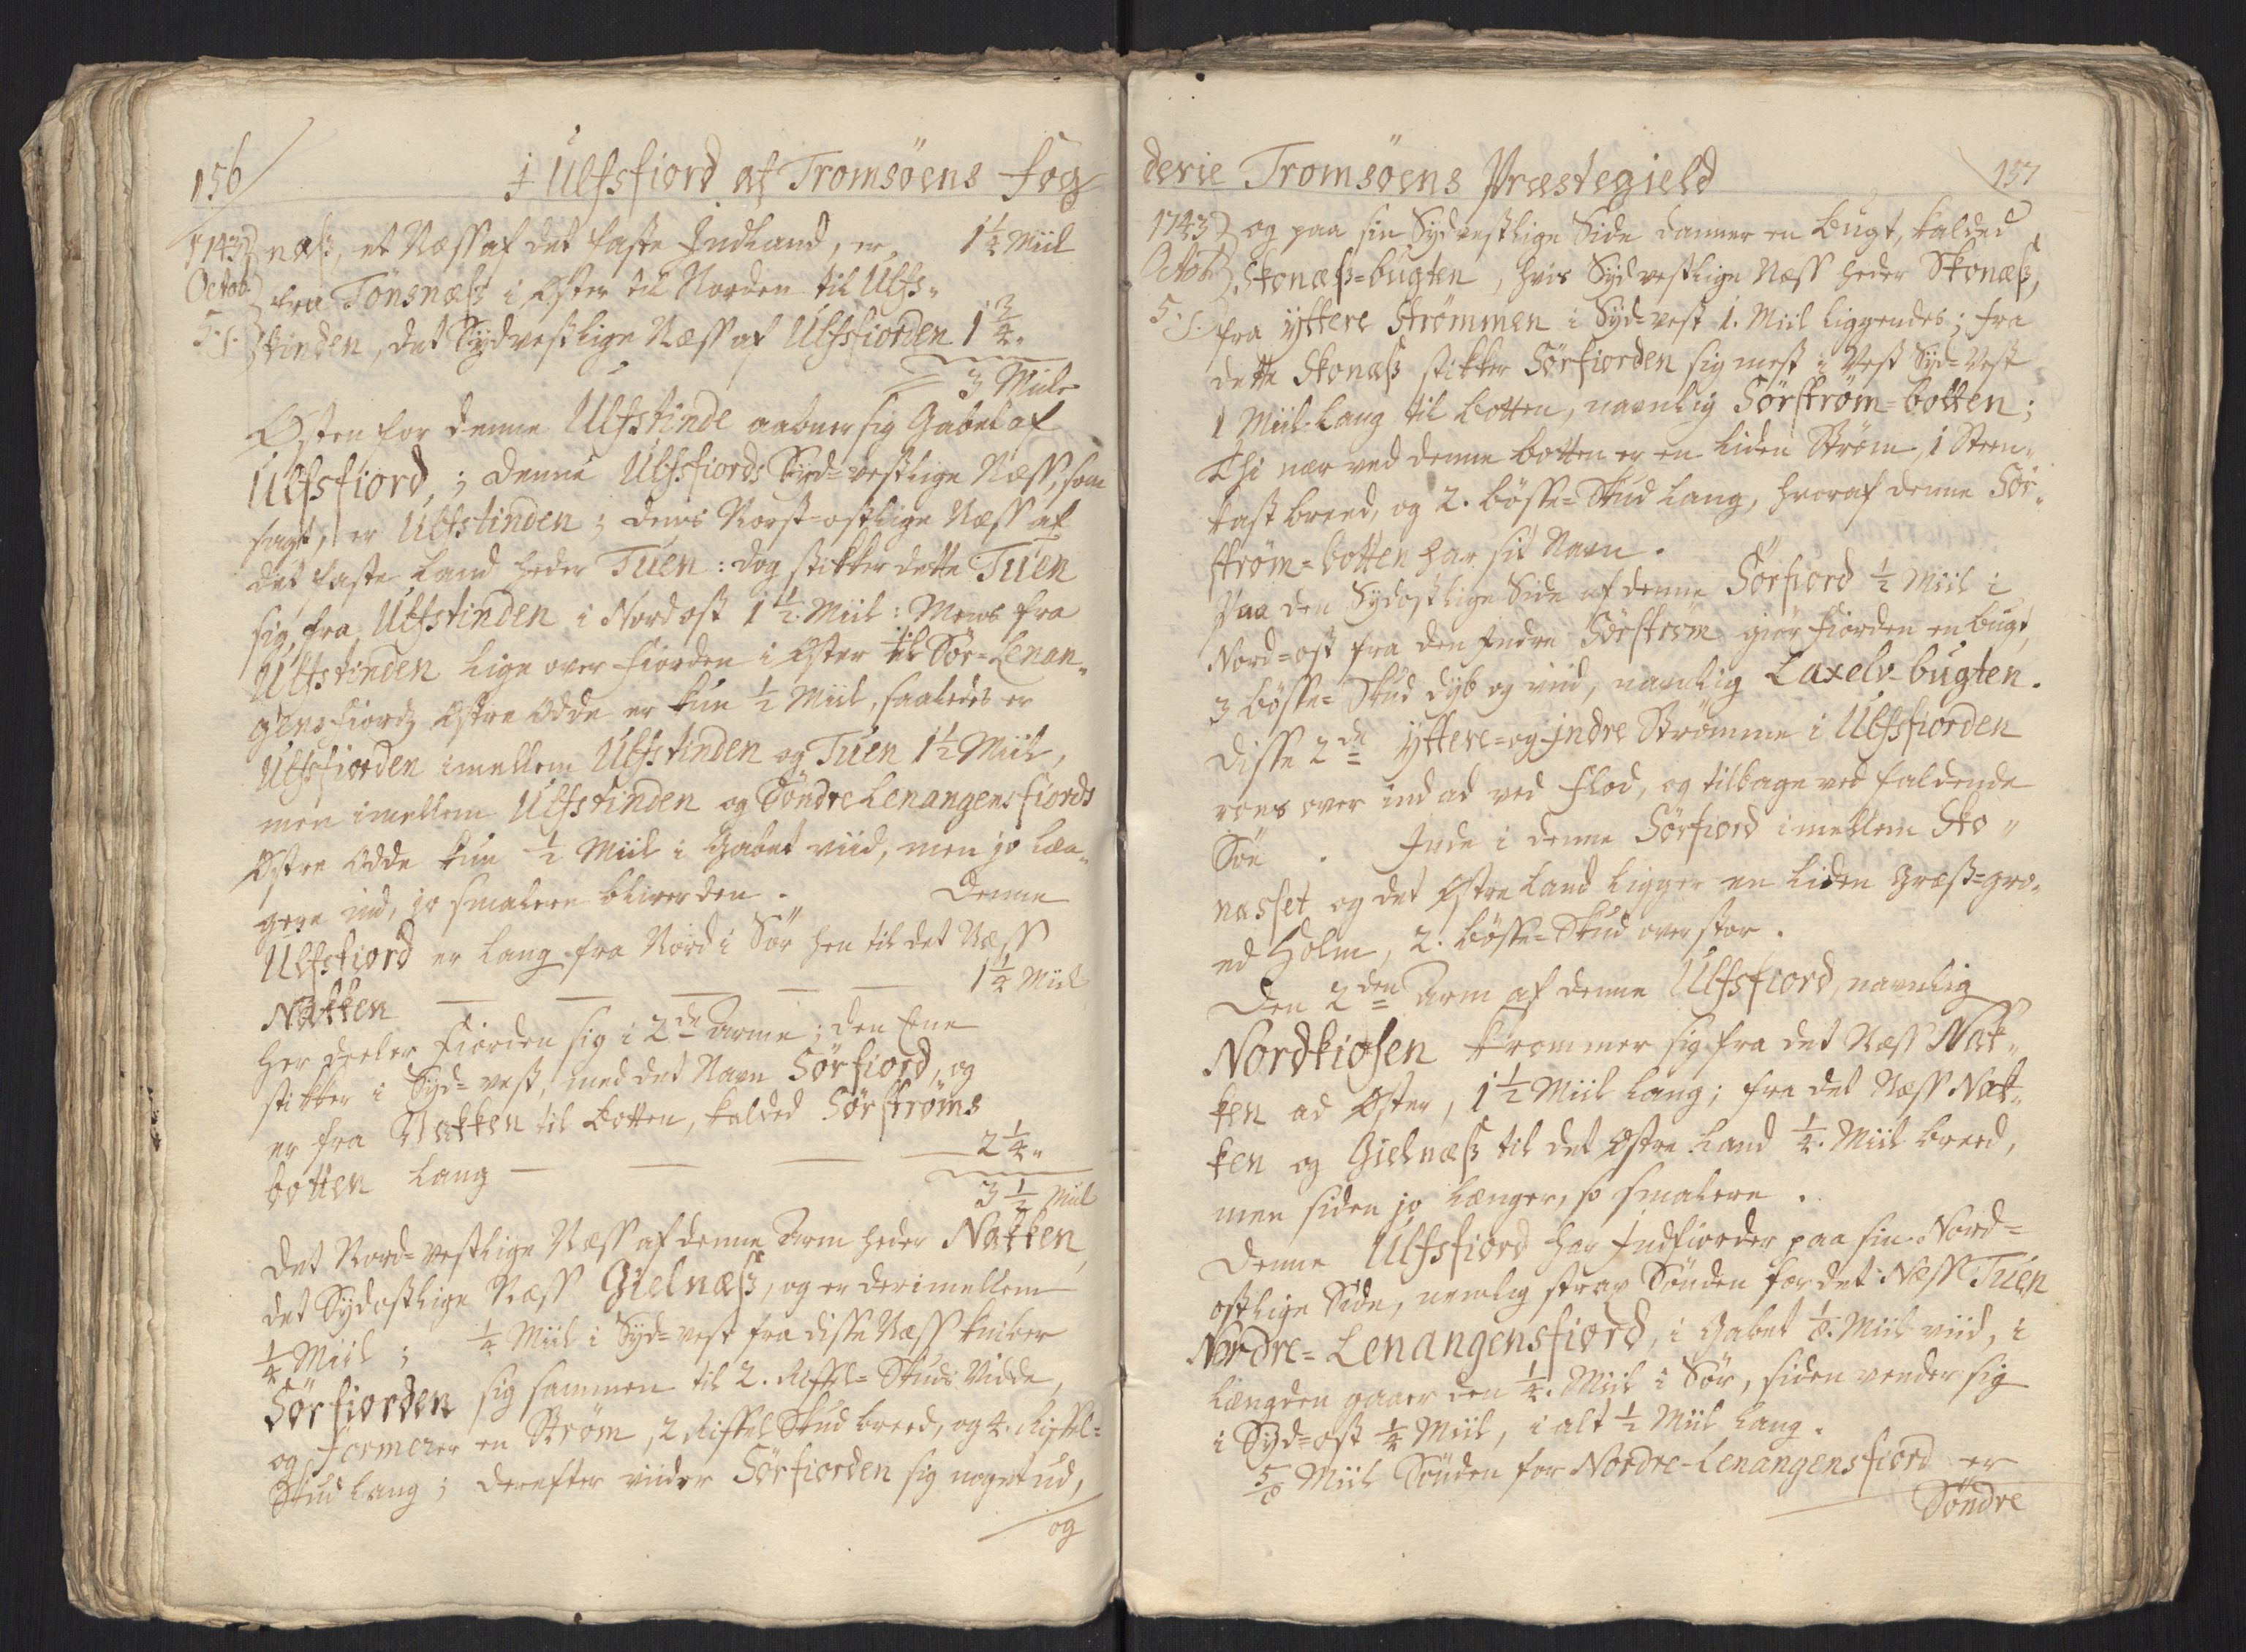 156
i Ulfsfiord af Tromsöens Fog
1743 næss, et Næss af det faste Indland, er 1 1/4 Miil
Octob. fra Tönsnæss i Öster til Norden til Ulfs„
5. tinden, det Sydvestlige Næss af Ulfsfiorden 1 3/4„
3 Miile
Østen for denne Ulfstinde aabner sig Gabet af
Ulfsfiord,; denne Ulfsfiords Syd=vestlige Næss, som
sagt, er Ulfstinden; dens Nord=ostlige Næss af
det faste Land heder Tuen: dog stikker dette Tuen
sig fra Ulfstinden i Nordost 1 1/2 Miil: Mens fra
Ulfstinden lige over Fiorden i Øster til Sör=Lenan„
gens fiords Østre Odde er kun 1/2 Miil, saaledes er
Ulfsfiorden imellem Ulfstinden og Tuen 1 1/2 Miil,
men imellem Ulfstinden og Söndre Lenangensfiords
Østre Odde kun 1/2 Miil i Gabet viid, men jo læn„
gere ind, jo smalere bliver den. Denne
Ulfsfiord er lang fra Nord i Sör hen til det Næss
Nakken — — — — — 1 1/4 Miil
her deeler Fiorden sig i 2de Arme; den Ene
stikker i Syd=vest, med det Navn Sörfiord, og
er fra Nakken til Botten, kalded Sörströms
botten lang — — — — 2 1/4„
3 1/2 Miil
Det Nord=vestlige Næss af denne Arm heder Nakken,
det Sydostlige Næss Gielnæss, og er derimellem
1/4 Miil; 1/4 Miil i Syd=vest fra disse Næss kniber
Sörfiorden sig sammen til 2. Riffel=Skuds Vidde,
og formerer en Ström, 2 Riffel Skud breed, og 4. Riffel=
Skud lang; derefter viider Sörfiorden sig noget ud,
og
derie Tromsöens Præstegield
157
1743 og paa sin Sydvestlige Side danner en Bugt, kalded
Octob. Skonæss=bugten, hvis Sydvestlige Næss heder Skonæss,
5. fra Yttere Strömmen i Syd=vest 1. Miil liggendes; fra
dette Skonæss stikker Sörfiorden sig mest i Vest Syd=Vest
1 Miil lang til Botten, navnlig Sörström=botten;
Thi nær ved denne Botten er en liden Ström, 1 Steen„
kast breed, og 2. Bösse=Skud lang, hvoraf denne Sör„
ström=botten har sit Navn.
Paa den Sydostlige Side af denne Sörfiord 1/2 Miil i
Nord=ost fra den Indre Sörström giör Fiorden en Bugt,
3 Bösse=Skud dyb og viid, navnlig Laxelv-bugten.
Disse 2de Yttere=og=Indre Strömme i Ulfsfiorden
roes over ind ad ved Flod, og tilbage ved faldende
Söe. Inde i denne Sörfiord imellem Sko„
nasset og det Østre Land ligger en liden græss=gro„
ed Holm, 2. Bösse=Skud over stor.
Den 2den Arm af denne Ulfsfiord, navnlig
Nordkiosen krommer sig fra det Næss Nak„
ken ad Øster, 1 1/2 Miil lang; fra det Næss Nak„
ken og Gielnæss til det Østre Land 1/4. Miil breed,
men siden jo længer, jo smalere.
Denne Ulfsfiord har Indfiorder paa sin Nord=
ostlige Side, nemlig strax Sönden for det Næss Tuen
Nordre=Lenangensfiord, i Gabet 1/8. Miil viid, i
Længden gaaer den 1/4. Miil i Sör, siden vender sig
i Syd=ost 1/4 Miil, i alt 1/2 Miil lang.
5/8 Miil Sönden for Nordre-Lenangensfiord er
Söndre